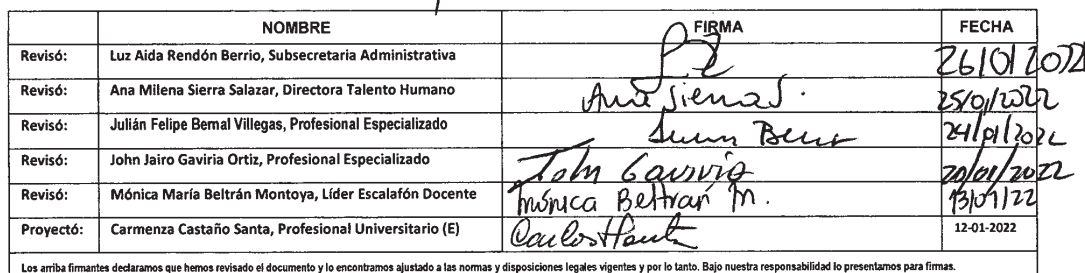 NOMBRE FIRMA FECHA
Revisó: Luz Aida Rendón Berrio, Subsecretaria Administrativa 26/01/2022
Revisó: Ana Milena Sierra Salazar, Directora Talento Humano Ana Sierra S. 25/01/2022
Revisó: Julián Felipe Bernal Villegas, Profesional Especializado 24/01/2022
Revisó: John Jairo Gaviria Ortiz, Profesional Especializado John Gaviria 20/01/2022
Revisó: Mónica María Beltrán Montoya, Líder Escalafón Docente Mónica Beltran M. 13/01/22
Proyectó: Carmenza Castaño Santa, Profesional Universitario (E) 12-01-2022
Los arriba firmantes declaramos que hemos revisado el documento y lo encontramos ajustado a las normas y disposiciones legales vigentes y por lo tanto. Bajo nuestra responsabilidad lo presentamos para firmas.